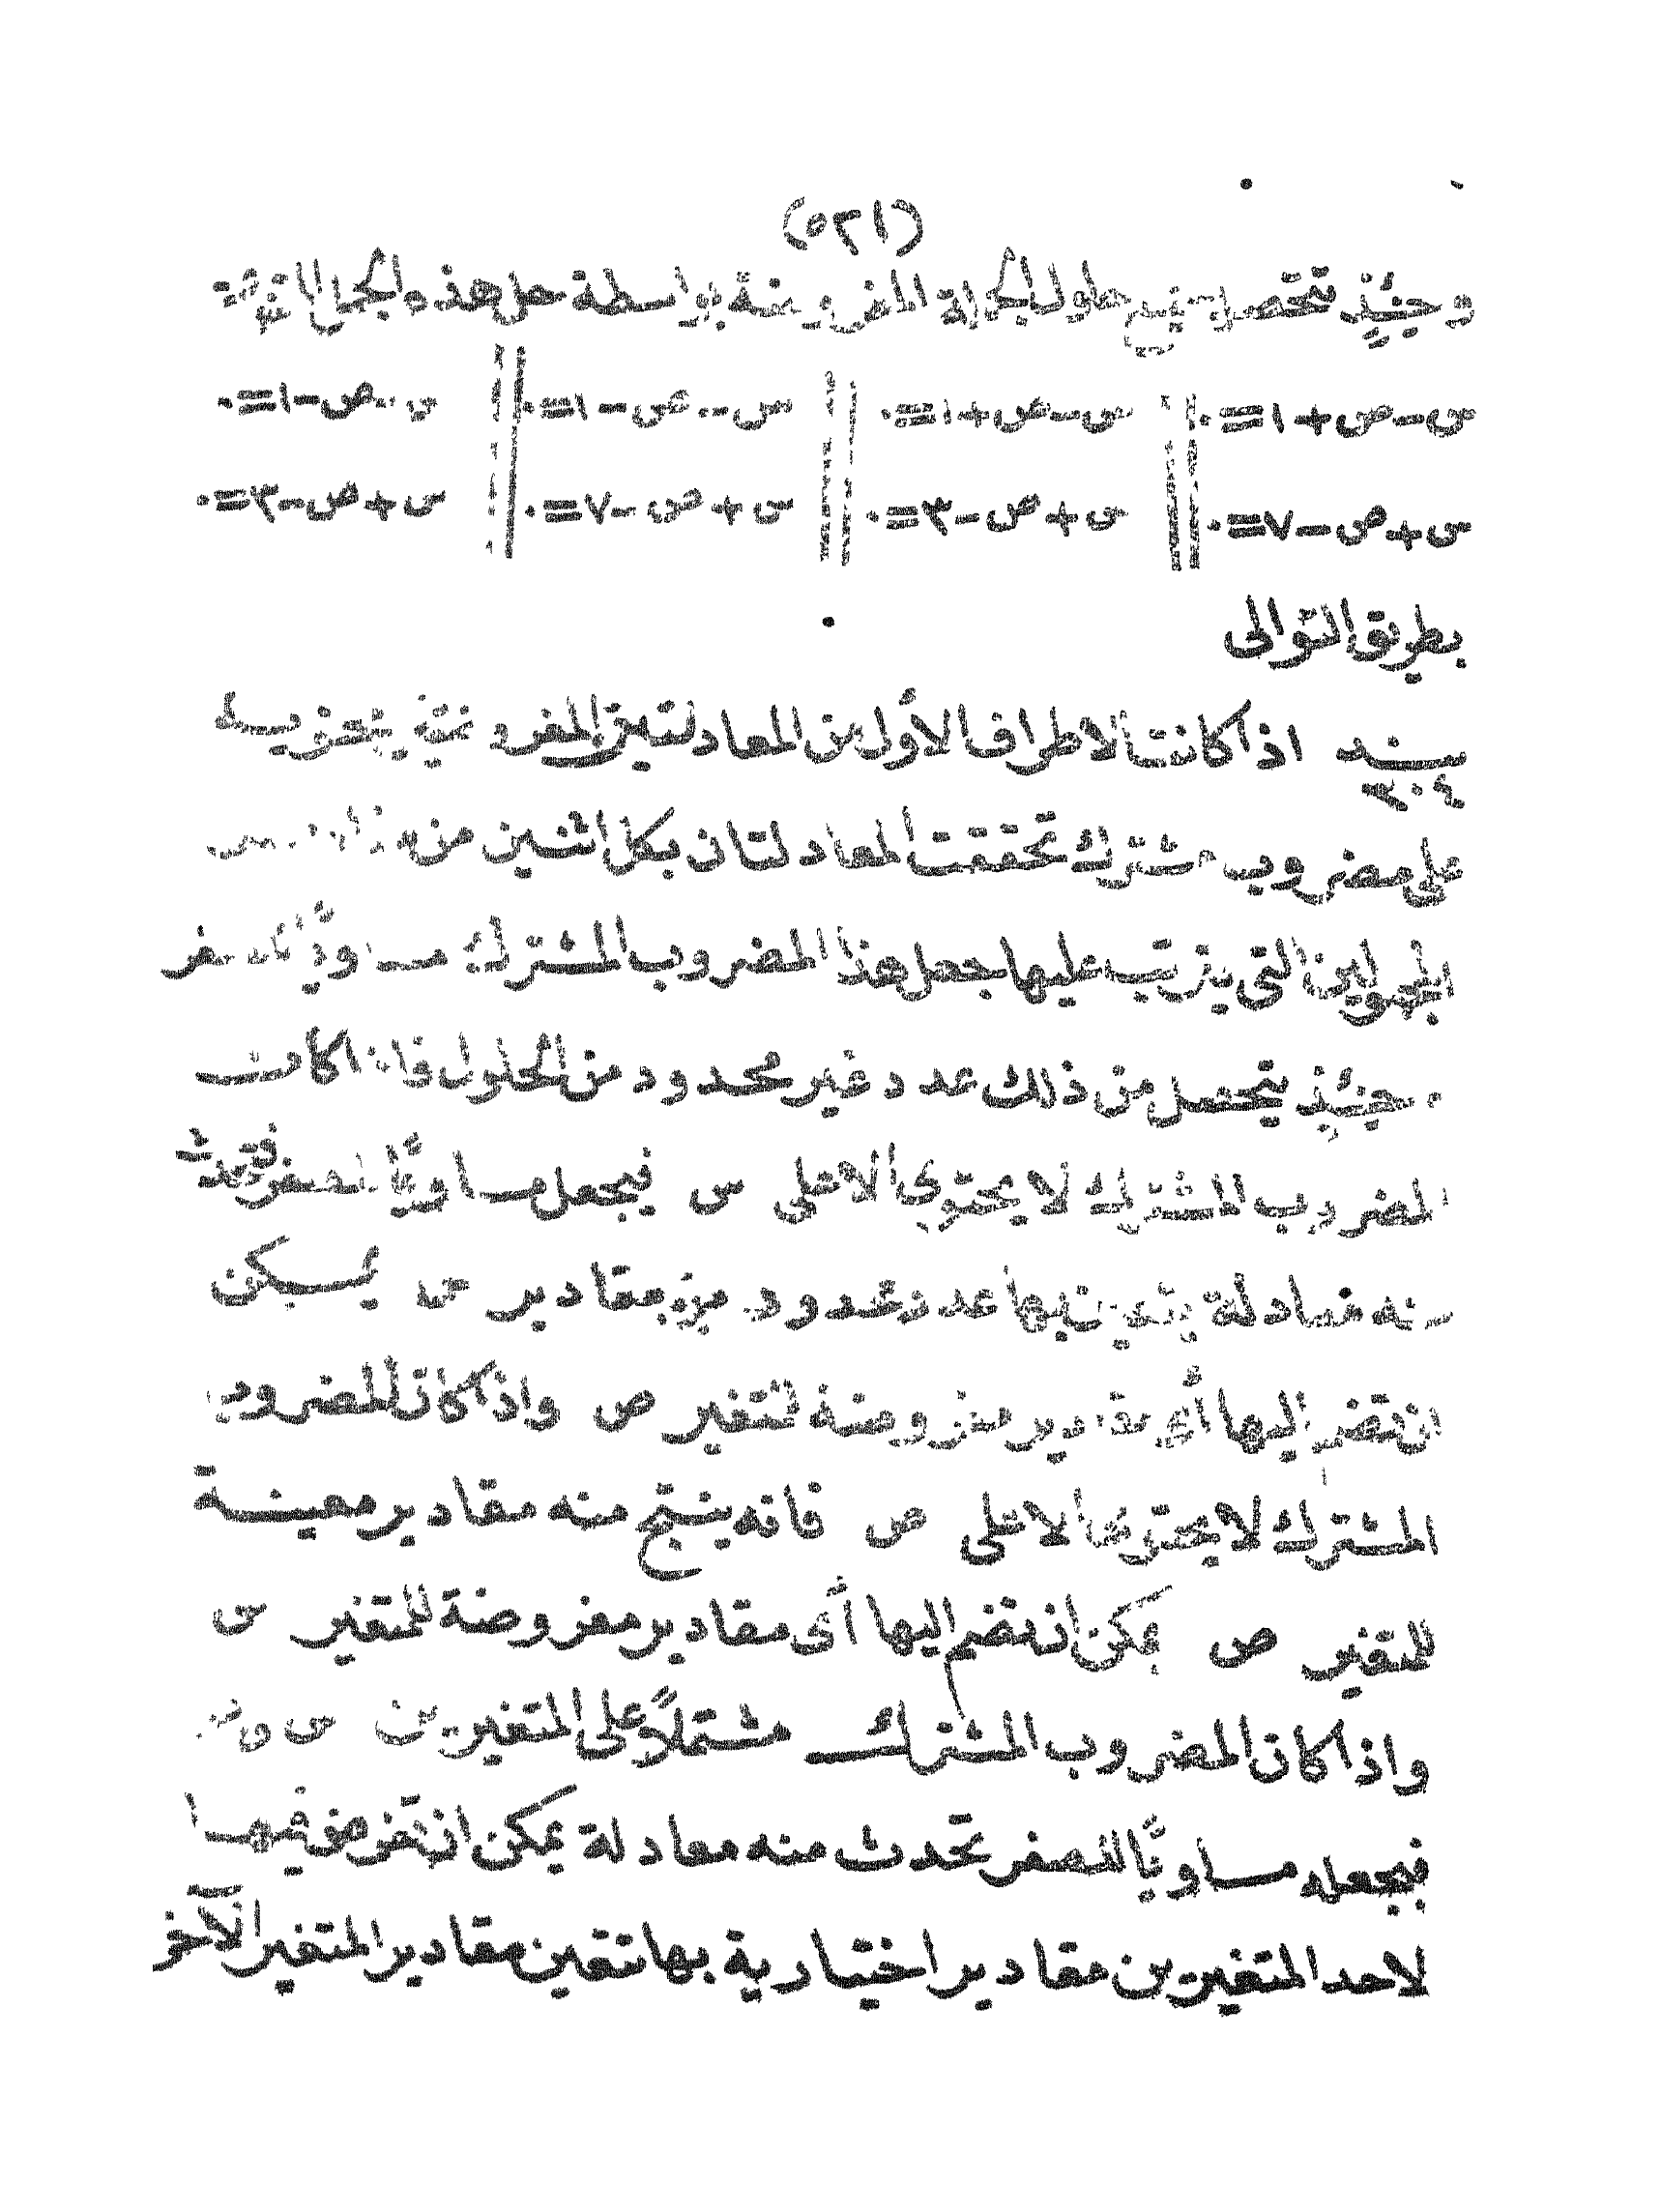 (٥٢١)
وحينئذ تتحصل جميع حلول الجملة المفروضة بواسطة حل هذه الجمل الاتية
س-ص+١=٠ || س-ص+١=٠ || س-ص-١=٠ || س-ص-١=٠
س+ص-٧=٠ || س+ص-٣=٠ || س+ص-٧=٠ || س+ص-٣=٠
بطريق التوالى
بند ٣٠٤ اذا كانت الاطراف الأول من المعادلتين المفروضتين محتوية
على مضروب مشترك تحققت المعادلتان بكل اثنين من
المجهولين التى يترتب عليها جعل هذا المضروب المشترك مساويًا للصفر
وحينئذ يتحصل من ذلك عدد غير محدود من الحلول فاذا كانت
المضروب المشترك لا يحتوى الا على س فيجعل مساويًّا للصفر فتحدث
منه معادلة يتعين بها عدد محدود من مقادير س يمكن
ان تضم اليها أى مقادير مفروضة للمتغير ص واذا كان المضروب
المشترك لا يحتوى الا على ص فانه ينتج منه مقادير معينة
للمتغير ص يمكن ان تضم اليها أى مقادير مفروضة للمتغير س
واذا كان المضروب المشترك مشتملاً على المتغيرين س و ص
فبجعله مساويًّا للصفر تحدث منه معادلة يمكن ان تفرض فيها
لاحد المتغيرين مقادير اختيارية بها تتعين مقادير المتغير الآخر